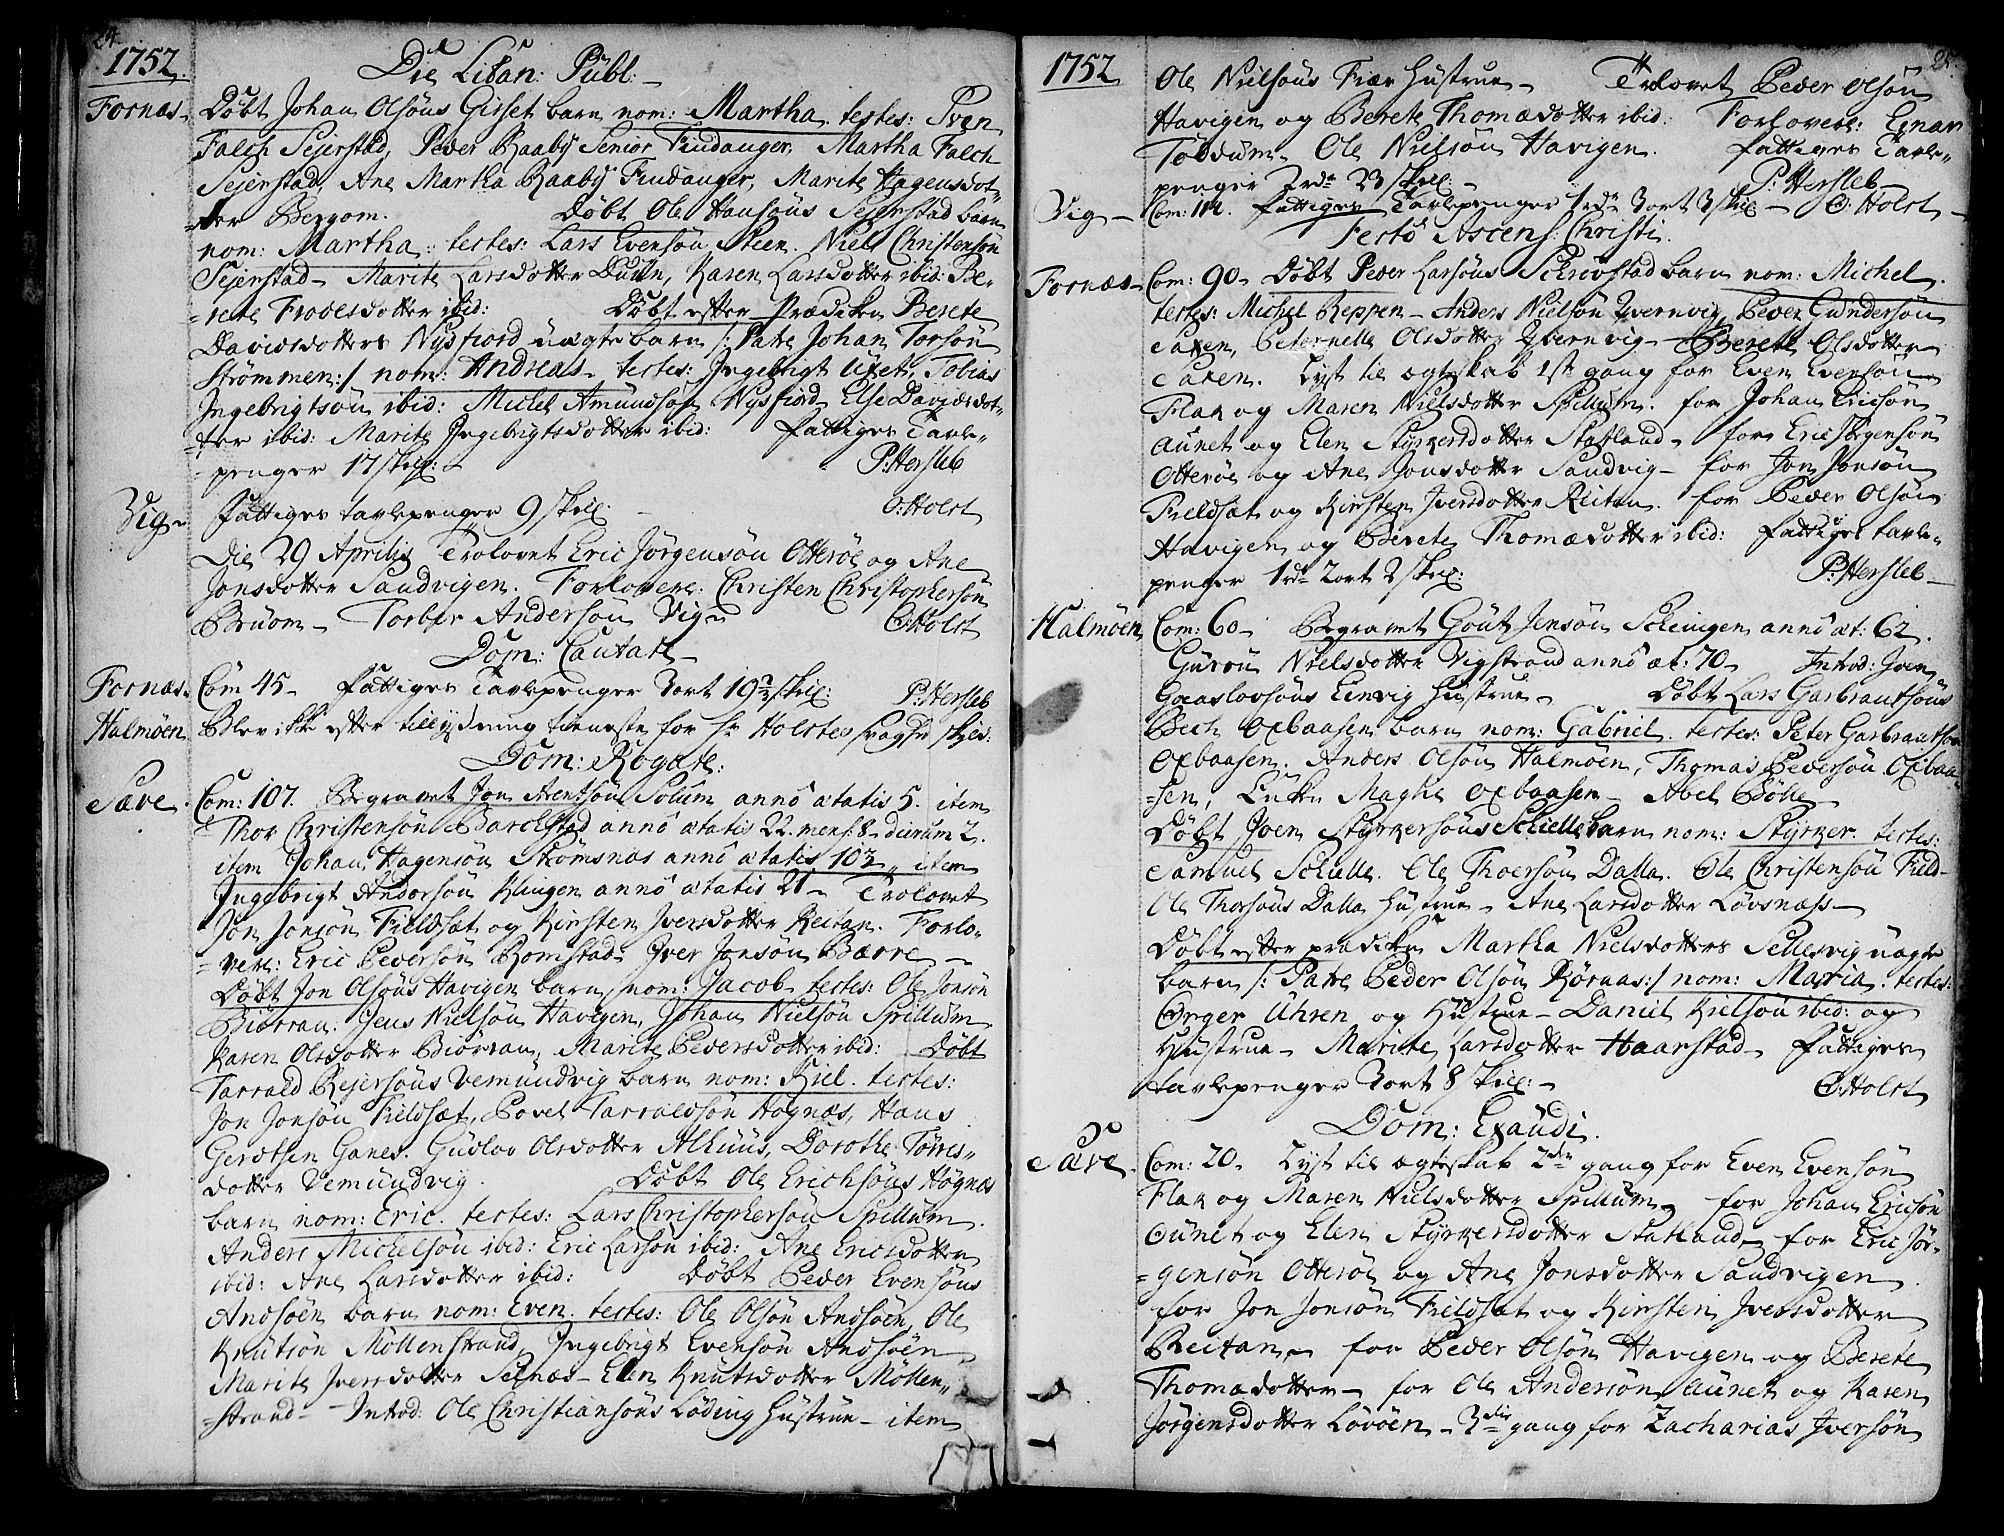 24
1752
Die Litan: Publ:
Fornæs Døbt Johan Olsøns Gifset barn nom: Martha. testes: Sven
Falch Sejerstad, Peder Raaby Senior Findanger, Martha Falch
Sejerstad, Ane Martha Raaby Findanger, Marite Hagensdot-
ter Bergom. Døbt Ole Hansøns Sejerstad barn
nom: Martha: testes: Lars Evensøn Steen. Niels Christensøn
Sejerstad Marite Larsdotter Duun, Karen Larsdotter ibid: Be-
-rete Frodesdotter ibid: Døbt efter Prædiken Berete
Davidsdotters Nysfiord uægte barn /: Patre Johan Torsøn
Strømmen:/ nom: Andreas. testes: Ingebrigt Uxet, Tobias
Ingebrigtsøn ibid: Michel Amundsøn Nysfiord, Else Davidsdot-
-ter ibid: Marite Ingebrigtsdotter ibid: Fattiges Tavle-
-penger 17 skil: P: Hersleb
Vig Fattiges tavlepenger 9 skil. O: Holst
Die 29 Aprilis Trolovet Eric Jørgensøn Otterøe og Ane
Jonsdotter Sandvigen. Forlovere: Christen Christophersøn
Bruom Torber Andersøn Vig O: Holst
Dom: Cantate
Fornæs Com 45 Fattiges Tavlepenger 3 ort 19½ skil: P: Hersleb
Halmøen Blev ikke efter tillysning tieneste for Hr Holstes svagh: skyld:
Dom: Rogate:
Sæve Com: 107. Begravet Jon Arentsøn Solum anno ætatis 5. item
Thor Christensøn Barchstad anno ætatis 22. mens: 8 dierum 2.
item Johan Hagensøn Strømsnæs anno ætatis 103 item
Ingebrigt Andersøn Klingen anno ætatis 21 Trolovet
Jon Jonsøn Fieldsæt og Kirsten Iversdotter Reitan. Forlo-
-vere: Eric Pedersøn Romstad Iver Jonsøn Bærre
Døbt Jon Olsøns Havigen barn, nom: Jacob testes: Ole Jonsøn
Biørran. Jens Nielsøn Havigen, Johan Nielsøn Spillum
Karen Olsdotter Biørran, Marite Pedersdotter ibid: Døbt
Tarrald Rejersøns Vemundvig barn nom: Kiel. testes:
Jon Jonsøn Fieldsæt, Povel Tarraldsøn Høgnæs, Hans
Gerdtsen Ganes. Gudlov Olsdotter Alhuus, Dorothe Torris-
dotter Vemundvig. Døbt Ole Erichsøns Høgnæs
barn nom: Eric. testes: Lars Christophersøn Spillum.
Anders Michelsøn ibid: Eric Larsøn ibid: Ane Ericsdotter
ibid: Ane Larsdotter ibid: Døbt Peder Evensøns
Andsøen barn nom: Even. testes: Ole Olsøn Andsøen, Ole
Knutsøn Møllenstrand, Ingebrigt Evensøn Andsøen
Marite Iversdotter Selnæs Elen Knutsdotter Møllen-
-strand Introd: Ole Christiansøns Løding hustrue item
25
1752
Ole Nielsøns Fiær hustrue Trolovet Peder Olsøn
Havigen og Berete Thomædotter ibid: Forlovere: Einar
Tødum Ole Nielsøn Havigen. Fattiges Tavle-
penger 2 rdr 23 skil. P: Hersleb
Vig Com: 114. Fattiges Tavlepenger 1 rdr 3 ort 3 skil O: Holst
Festo Ascens: Christi.
Fornæs Com: 90 Døbt Peder Larsøns Schrøvstad barn nom: Michel.
testes: Michel Reppen Anders Nielsøn Qvernvig, Peder Gundersøn
Saxen, Peternelle Olsdotter Qvernvig Berete Olsdotter
Saxen. Lyst til egteskab 1st gang for Even Evensøn
Flak og Maren Nielsdotter Spillum. for Johan Ericsøn
Aunet og Elen Styrkersdotter Statland for Eric Jørgensøn
Otterøe og Ane Jonsdotter Sandvig for Jon Jonsøn
Fieldsæt og Kirsten Iversdotter Reitan. for Peder Olsøn
Havigen og Berete Thomædotter ibid: Fattiges tavle-
penger 1 rdr 2 ort 2 skil: P: Hersleb
Halmøen Com: 60 Begravet Gout Jensøn Scheingen anno æt: 62.
Guron Nielsdotter Vigstrand anno æt: 70 Introd: Joen
Gaaslovsøns Einvig hustrue Døbt Lars Garbrantsøns
Bech Oxbaasen barn nom: Gabriel. testes: Peter Garbrantsøn
Oxbaasen. Anders Olsøn Halmøen, Thomas Pedersøn Oxbaa-
-sen, Maghe Oxbaasen Abel Bølle
Døbt Joen Styrkersøns Schielle barn nom: Styrker. testes:
Samuel Schielle. Ole Thoersøn Dalla. Ole Christensøn Field
Ole Thorsøns Dalla hustrue Ane Larsdotter Løvsnæss
Døbt efter prædiken Martha Nielsdotters Sellesvig uægte
barn /: Patre Peder Olsøn Rørnaas:/ nom: Maria: testes:
Ørger Uhren og Hustrue Daniel Kielsøn ibid: og
Hustrue Marite Larsdotter Haarstad Fattiges
tavlepenger 3 ort 8 skil: O: Holst
Dom: Exaudi.
Sæve Com: 20. Lyst til egteskab 2den gang for Even Evensøn
Flak og Maren Nielsdotter Spillum, for Johan Ericsøn
Aunet og Elen Styrkersdotter Statland, for Eric Jør-
-gensøn Otterøe og Ane Jonsdotter Sandvigen
for Jon Jonsøn Fieldsæt og Kirsten Iversdotter
Reitan, for Peder Olsøn Havigen og Berete
Thomædotter for Ole Andersøn Aunet og Karen
Jørgensdotter Løvøen 3die gang for Zacharias Iversøn